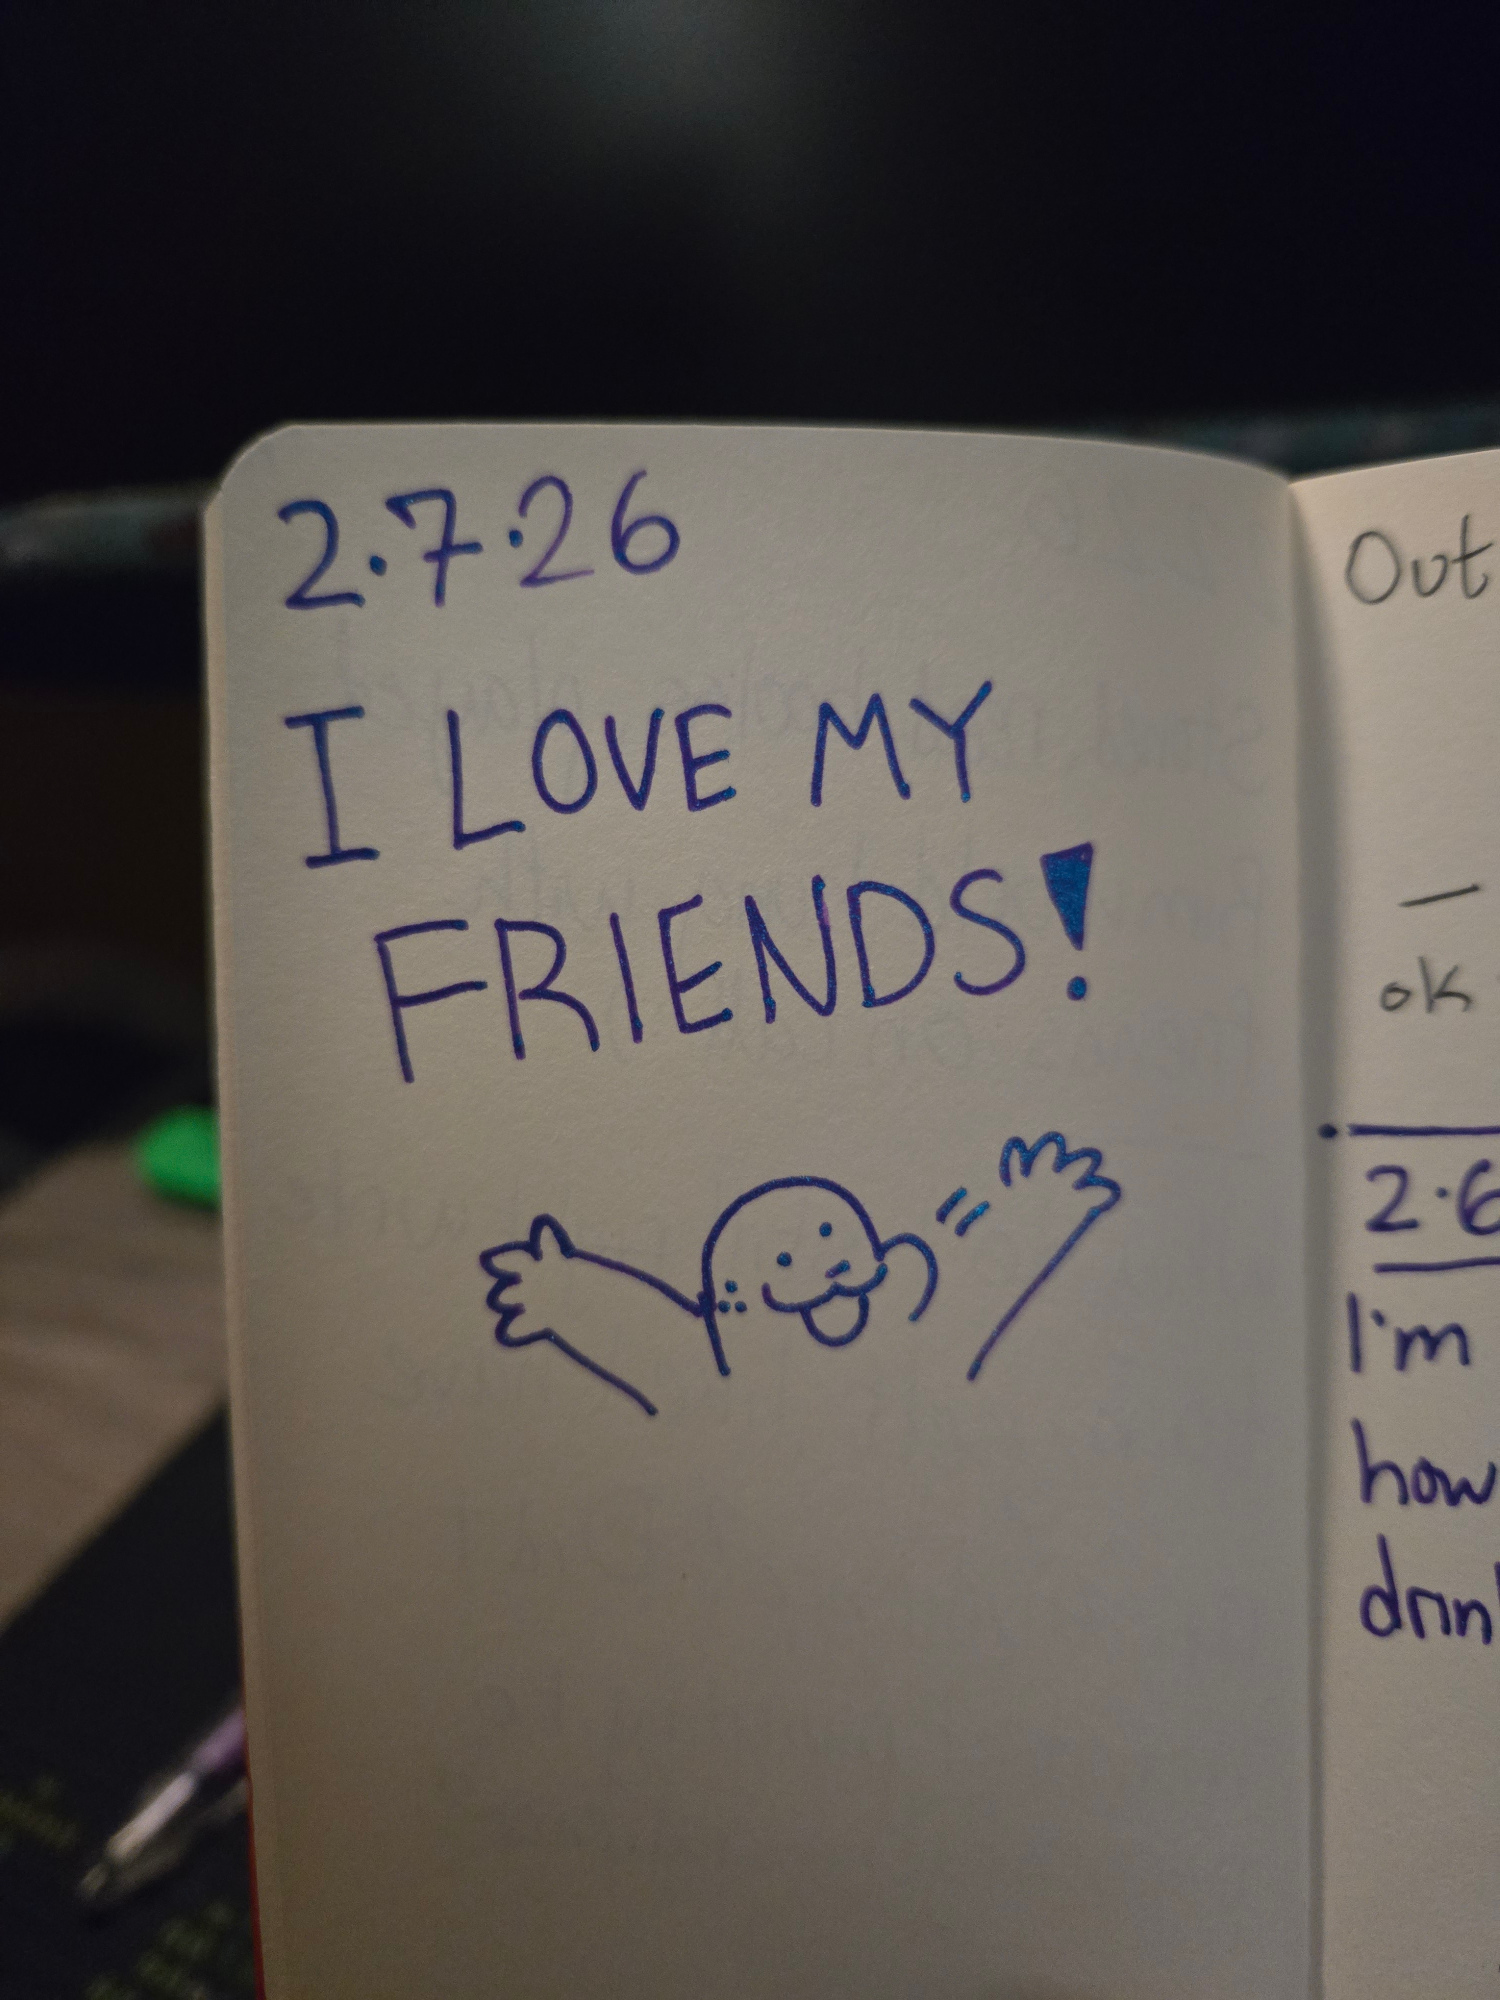 2.7.26
I LOVE MY
FRIENDS!
Out
— 
ok
2.6
I'm
how